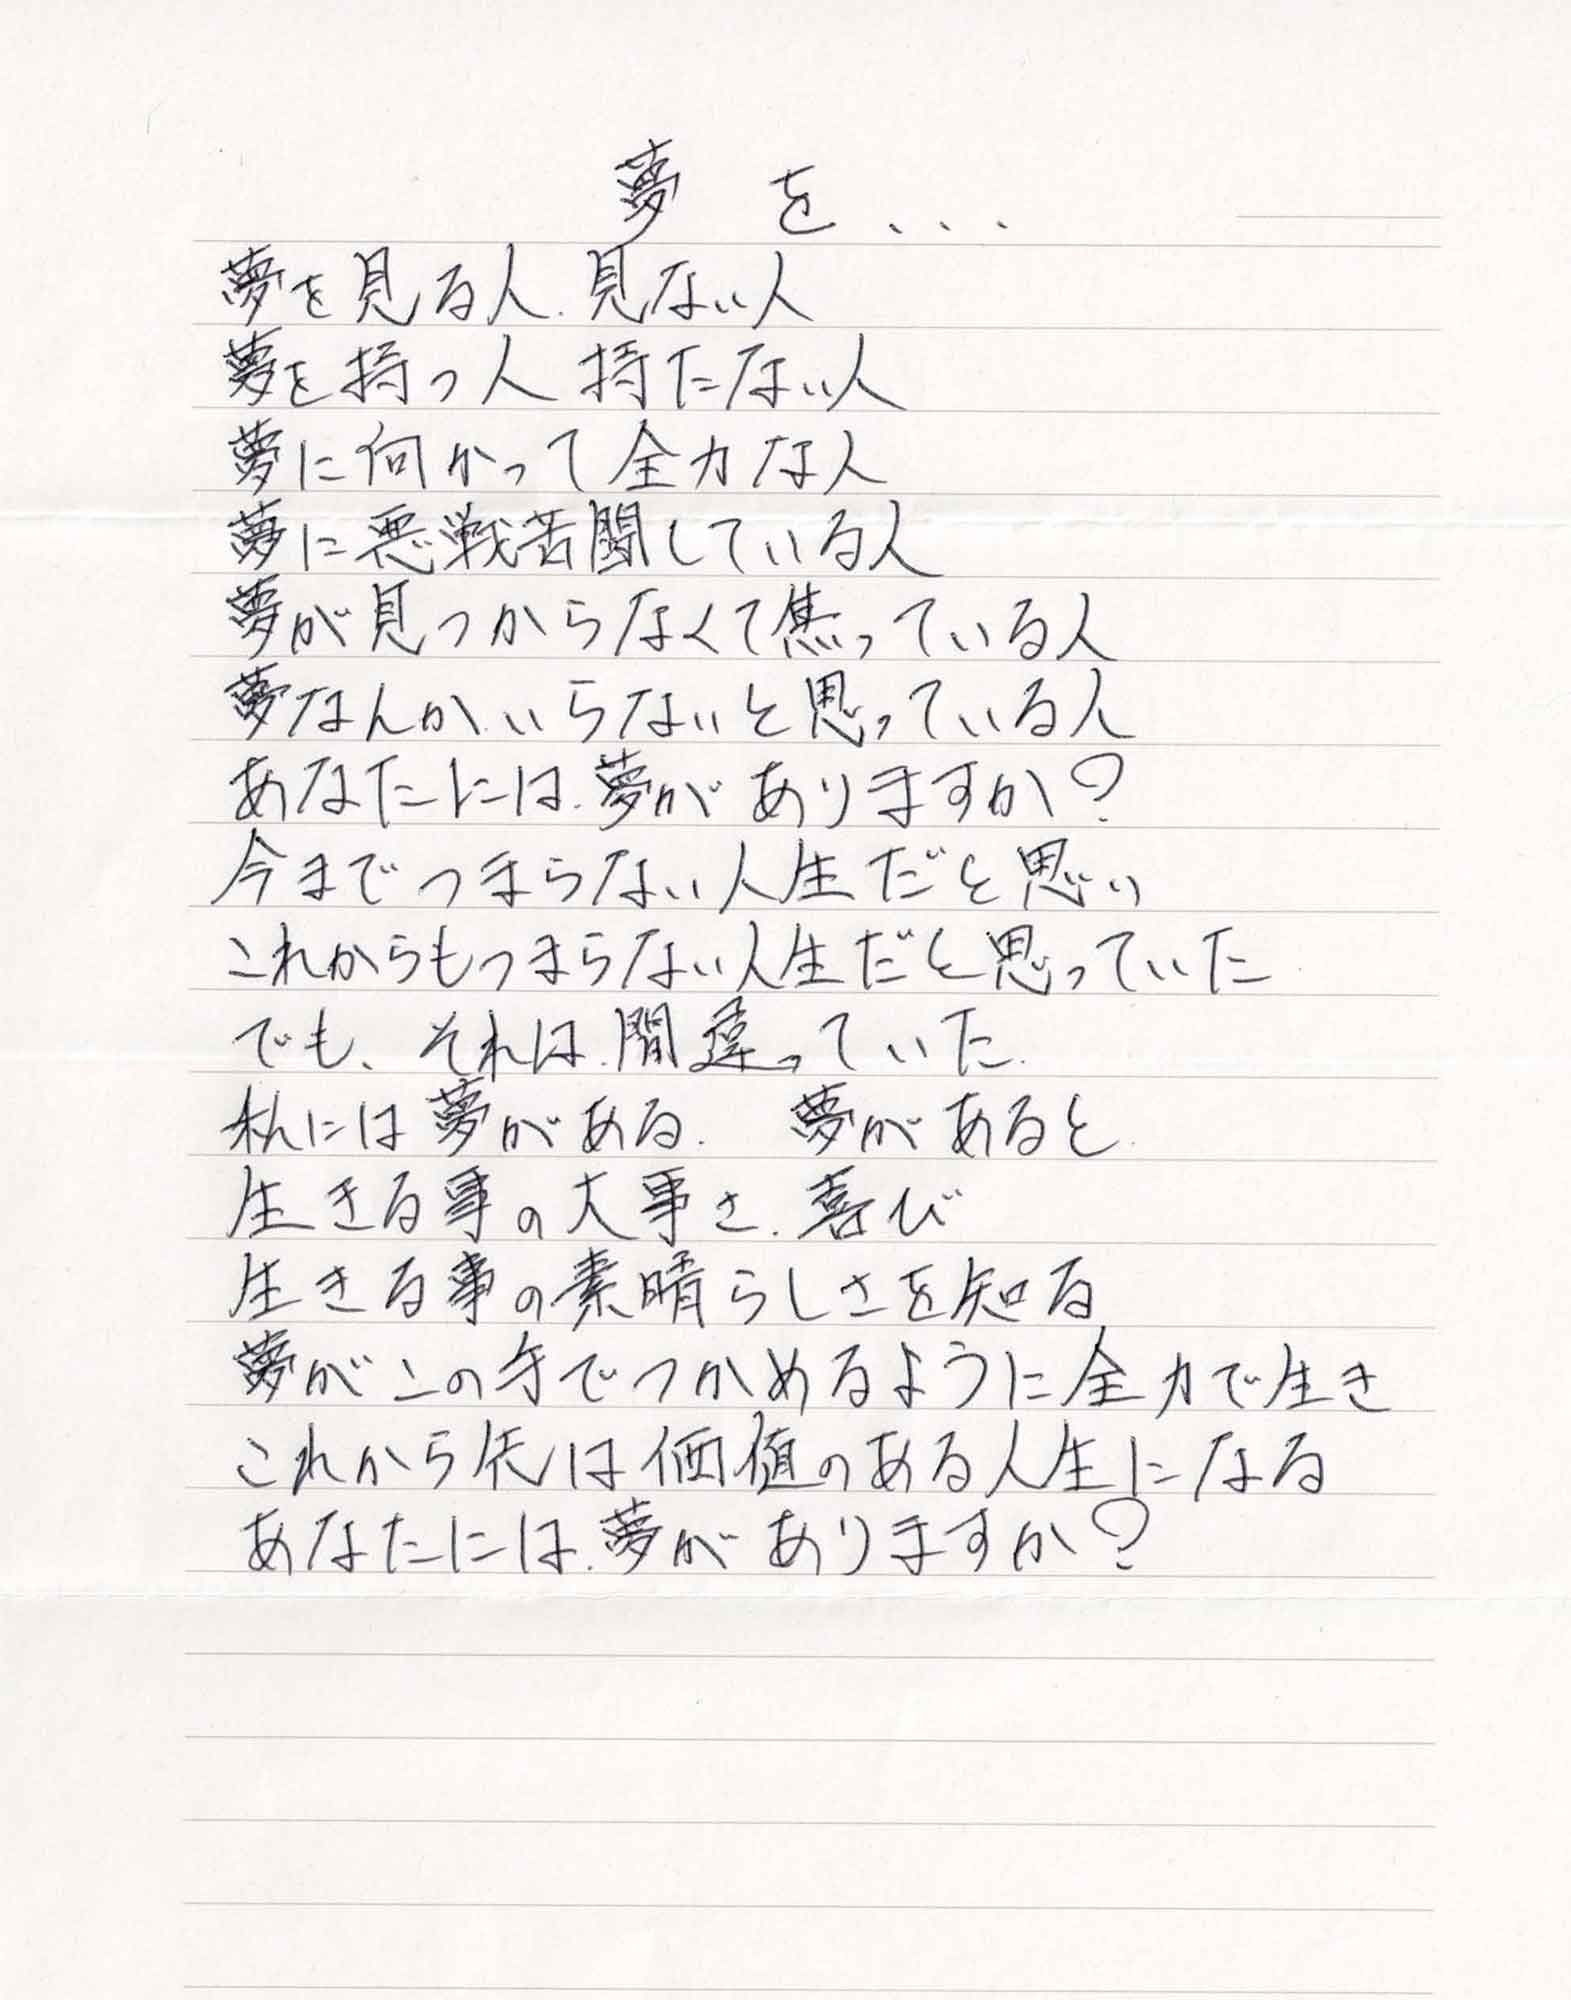 夢を...
夢を見る人、見ない人
夢を持つ人 持たない人
夢に向かって全力な人
夢に悪戦苦闘している人
夢が見つからなくて焦っている人
夢なんか、いらないと思っている人
あなたには、夢がありますか?
今までつまらない人生だと思い
これからもつまらない人生だと思っていた
でも、それは、間違っていた。
私には夢がある。 夢があると
生きる事の大事さ、喜び
生きる事の素晴らしさを知る
夢がこの手でつかめるように全力で生き
これから先は価値のある人生になる
あなたには、夢がありますか?